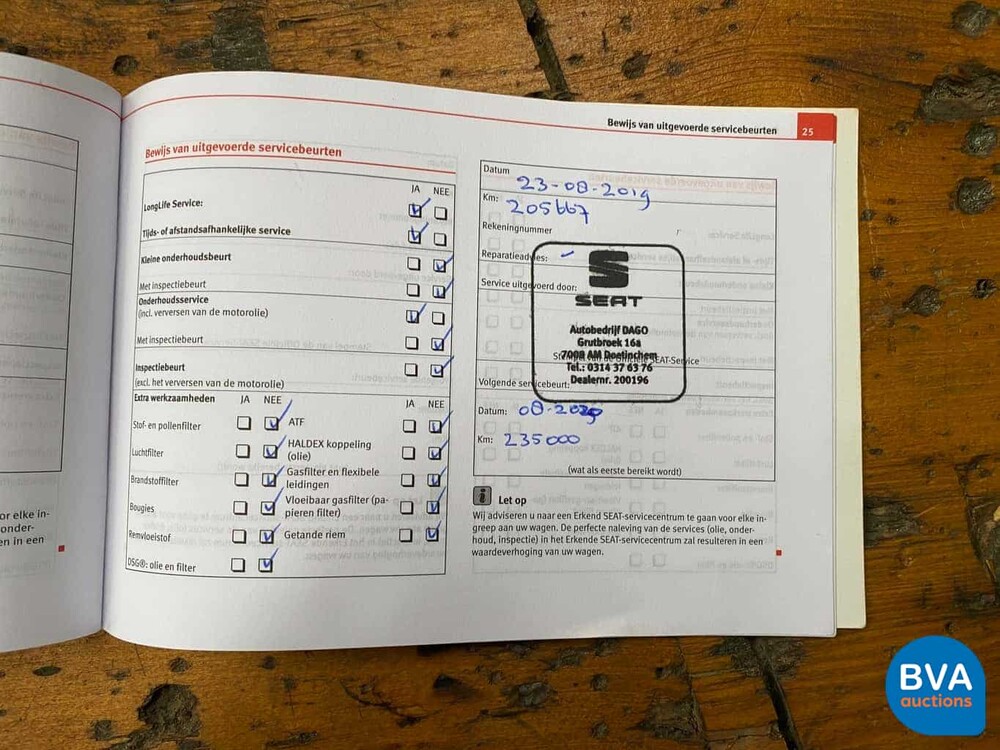 Bewijs van uitgevoerde servicebeurten 25
Bewijs van uitgevoerde servicebeurten
JA NEE
LongLife Service:
Tijds- of afstandsafhankelijke service
Kleine onderhoudsbeurt
Met inspectiebeurt
Onderhoudsservice
(incl. verversen van de motorolie)
Met inspectiebeurt
Inspectiebeurt
(excl. het verversen van de motorolie)
Extra werkzaamheden JA NEE JA NEE
Stof- en pollenfilter ATF
Luchtfilter HALDEX koppeling
(olie)
Brandstoffilter Gasfilter en flexibele
leidingen
Bougies Vloeibaar gasfilter (pa-
pieren filter)
Remvloeistof Getande riem
DSG®: olie en filter
Datum 23-08-2019
Km: 205667
Rekeningnummer
Reparatieadvies:
Service uitgevoerd door:
SEAT
Autobedrijf DAGO
Grutbroek 16a
7008 AM Doetinchem
SEAT-Service
Tel.: 0314 37 63 76
Dealernr. 200196
Volgende servicebeurt:
Datum: 08-2020
Km: 235000
(wat als eerste bereikt wordt)
Let op
Wij adviseren u naar een Erkend SEAT-servicecentrum te gaan voor elke in-
greep aan uw wagen. De perfecte naleving van de services (olie, onder-
houd, inspectie) in het Erkende SEAT-servicecentrum zal resulteren in een
waardeverhoging van uw wagen.
or elke in-
onder-
en in een
BVA
auctions